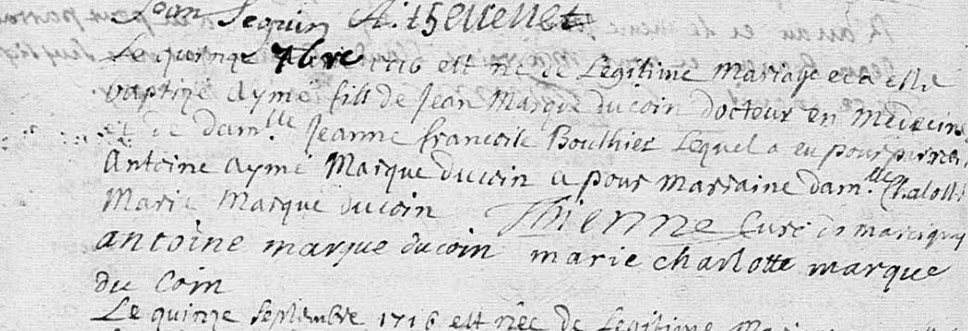 Jean Seguin A. thevenet
Le quinze 7bre 1716 est né de Legitime Mariage et a esté
baptizé Aymé fils de Jean Marque ducoin Docteur en Medecine
et de dam.lle Jeanne francoise Bouthier Lequel a eu pour parrain
Antoine Aymé Marque ducoin a pour Marraine dam.lle Chalotte
Marie Marque ducoin Thienne Curé de marcigny
antoine marque ducoin marie charlotte marque
du Coin
Le quinze septembre 1716 est née de Legitime